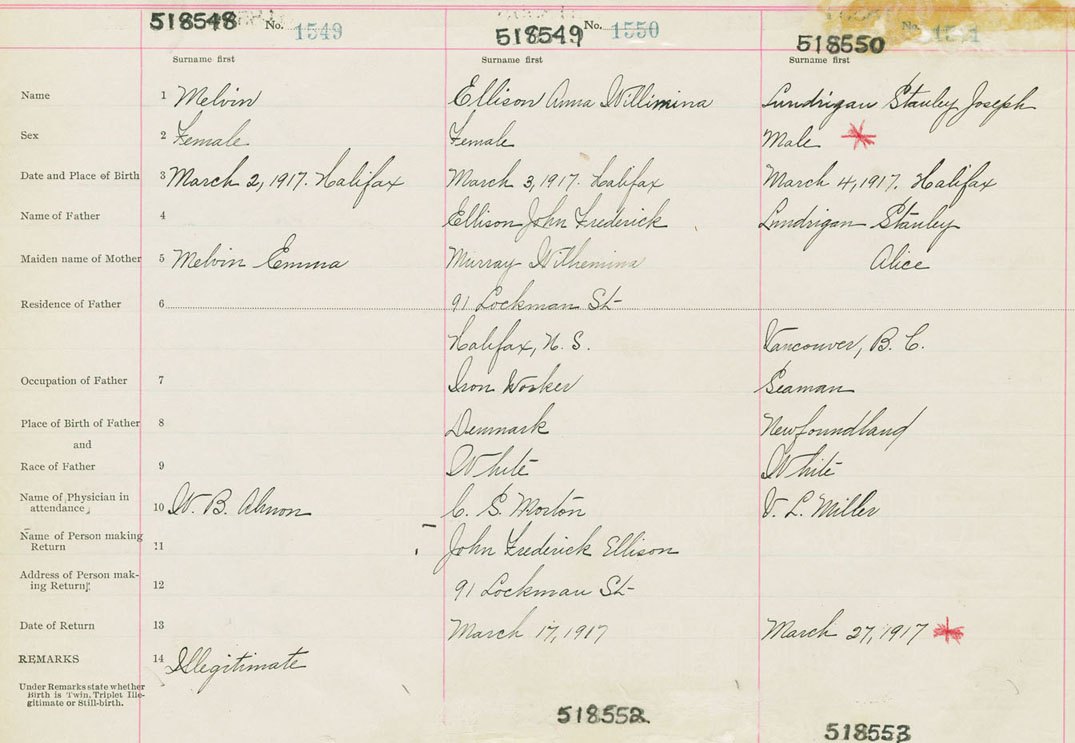 518548 No. 1549 518549 No. 1550 518550 No.
Surname first Surname first Surname first
Name 1 Melvin Ellison Anna Willimina Lundrigan Stanley Joseph
Sex 2 Female Female Male
Date and Place of Birth 3 March 2, 1917. Halifax March 3, 1917. Halifax March 4, 1917. Halifax
Name of Father 4 Ellison John Frederick Lundrigan Stanley
Maiden name of Mother 5 Melvin Emma Murray Wilhemina Alice
Residence of Father 6 91 Lockman St
Halifax, N. S. Vancouver, B. C.
Occupation of Father 7 Iron Worker Seaman
Place of Birth of Father 8 Denmark Newfoundland
and
Race of Father 9 White White
Name of Physician in
attendance 10 W. B. Almon C. S. Morton V. L. Miller
Name of Person making
Return 11 John Frederick Ellison
Address of Person mak-
ing Return 12 91 Lockman St
Date of Return 13 March 17, 1917 March 27, 1917
REMARKS 14 Illegitimate
Under Remarks state whether
Birth is Twin, Triplet Ille-
gitimate or Still-birth.
518552 518553